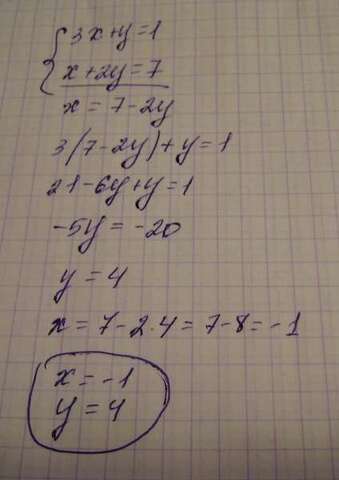 {3x+y=1
x+2y=7
x = 7-2y
3(7-2y)+y=1
21-6y+y=1
-5y=-20
y=4
x = 7-2·4=7-8=-1
x=-1
y=4